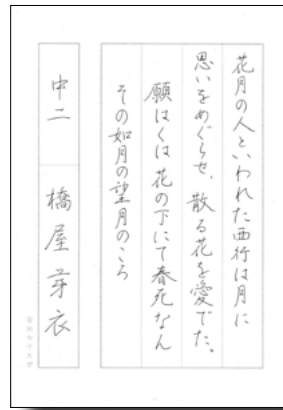 花月の人といわれた西行は月に
思いをめぐらせ、散る花を愛でた。
願はくは花の下にて春死なん
その如月の望月のころ
中二 橋屋芽衣